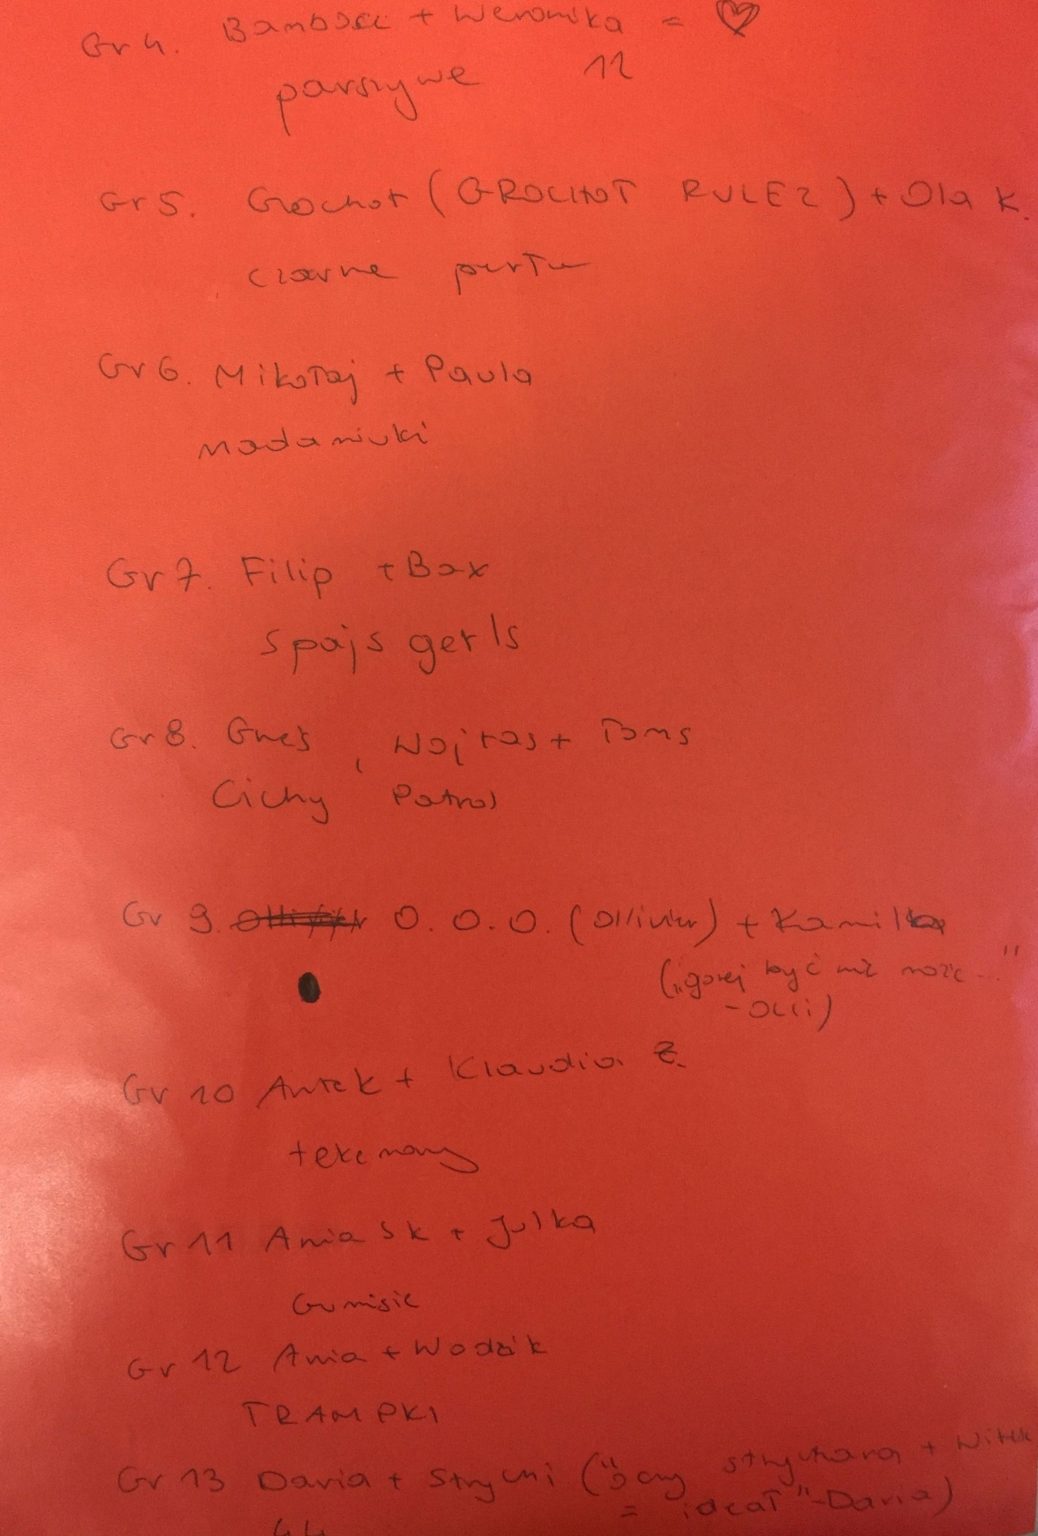 Gr 4. Bambosz + Weronika = ♡
parszywe 12
Gr 5. Grochot (GROCHOT RULEZ) + Ola K.
czarne
Gr 6. Mikołaj + Paula
Gr 7. Filip + Bax
spajs gerls
Gr 8. Gneś, Wojtas + Toms
Cichy Patrol
Gr 9. O. O. O. (Ollivier) + Kamila
("gorej być nie może..."
- Olli)
Gr 10 Antek + Klaudia Z.
Gr 11 Ania Sk + Julka
Gumisie
Gr 12 Ania + Wodzik
TRAMPKI
Gr 13 Daria + Strychi ("oczy strychara + Witek
= ideał" - Daria)
44